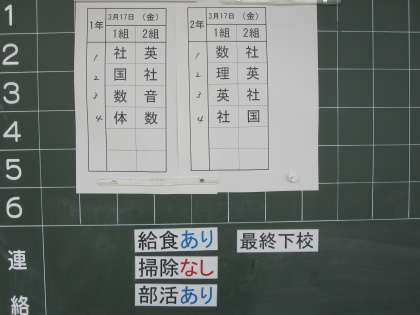 1
2
3
4
5
6
連
絡
1年 3月17日 (金)
1組 2組
1 社 英
2 国 社
3 数 音
4 体 数
2年 3月17日 (金)
1組 2組
1 数 社
2 理 英
3 英 社
4 社 国
給食あり 最終下校
掃除なし
部活あり